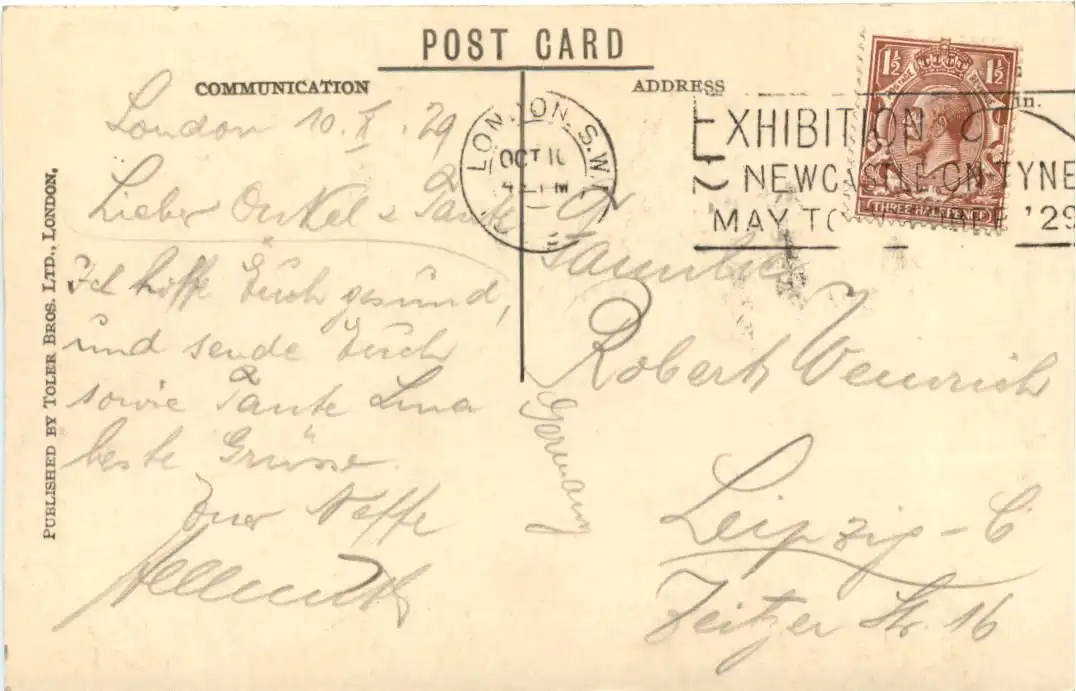 POST CARD
COMMUNICATION
ADDRESS
London 10. X. 29
Lieber Onkel & Tante
Ich hoffe Euch gesund,
und sende Euch
sowie Tante Lina
beste Grüsse.
Euer Neffe
Hellmuth
PUBLISHED BY TOLER BROS. LTD., LONDON.
LONDON. S.W.
OCT 10
PM
EXHIBITION
NEWCASTLE-ON-TYNE
MAY TO '29
1½ 1½
POSTAGE REVENUE
THREE HALFPENCE
in.
Familie
Robert Weinrich
Germany
Leipzig - C
Zeitzer Str. 16